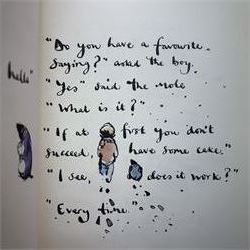 hello"
"Do you have a favourite
saying?" asked the boy.
"Yes" said the mole
"What is it?"
"If at first you don't
succeed, have some cake."
"I see, does it work?"
"Every time."